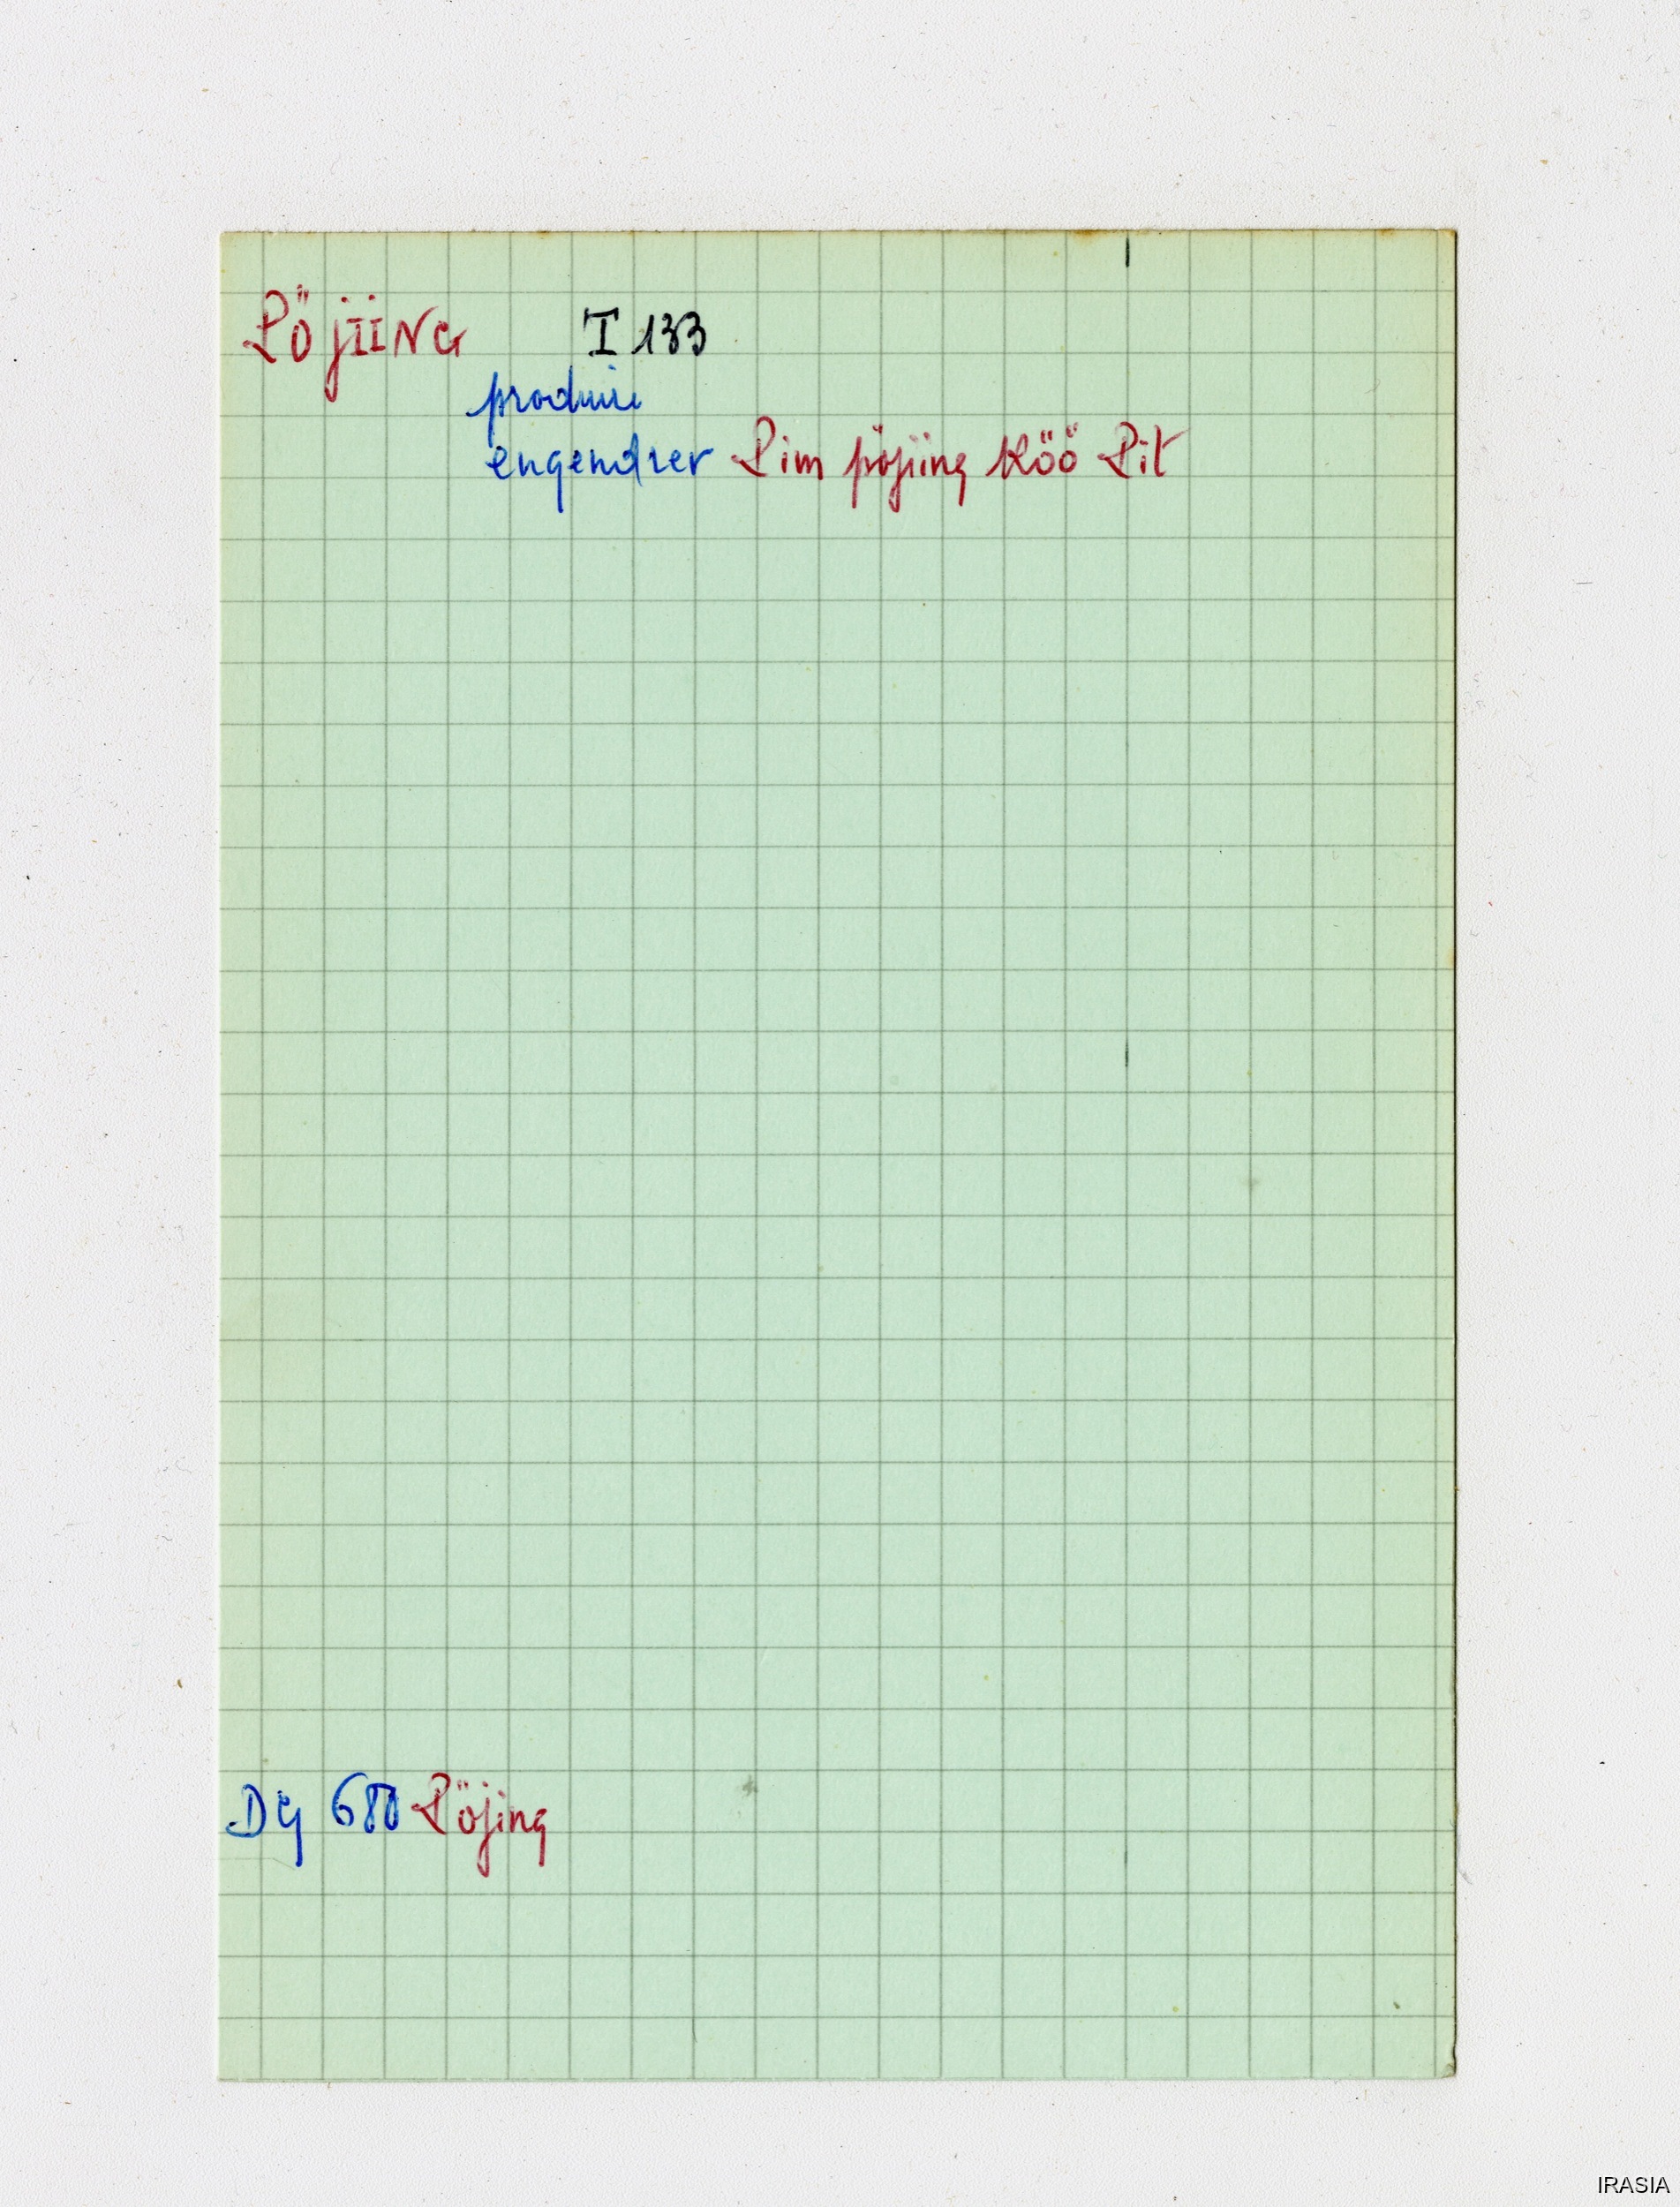 PÖjIING I 133
produire
engendrer Pim pöjiing Köö Pit
DG 680 Pöjing
IRASIA